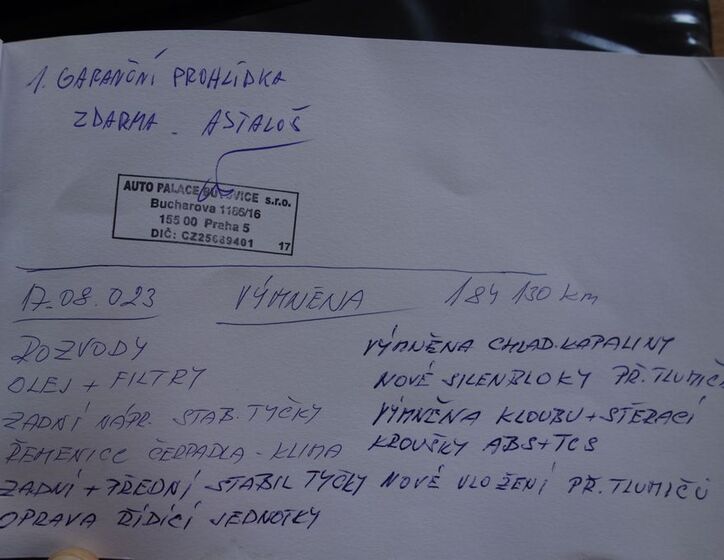 1. GARANČNÍ PROHLÍDKA
ZDARMA. ASTALOŠ
AUTO PALACE BUTOVICE s.r.o.
Bucharova 1186/16
155 00 Praha 5
DIČ: CZ25689401
17
17.08.023 VÝMNĚNA 184 130 km
ROZVODY
OLEJ + FILTRY
ZADNÍ NÁPR. STAB. TYČKY
ŘEMENICE ČERPADLA - KLIMA
ZADNÍ + PŘEDNÍ STABIL TYČKY
OPRAVA ŘÍDÍCÍ JEDNOTKY
VÝMNĚNA CHLAD. KAPALINY
NOVÉ SILENBLOKY PŘ. TLUMIČ
VÝMNĚNA KLOUBU + STĚRACÍ
KROUŠKY ABS + TCS
NOVÉ ULOŽENÍ PŘ. TLUMIČŮ